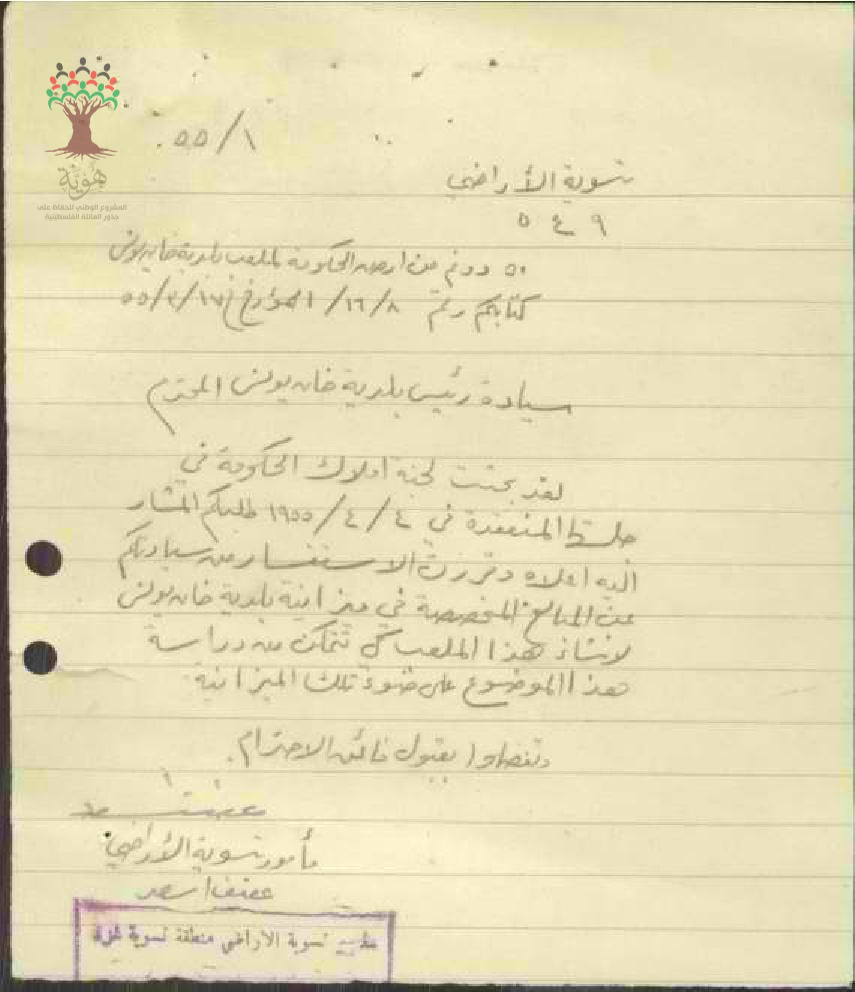 هُوِيَّة
المشروع الوطني للحفاظ على
جذور العائلة الفلسطينية
٥٥/١
تسوية الأراضي
٥٤٩
٥٠ دونم من ارض الحكومة لملعب بلدية خان يونس
كتابكم رقم ١٦/٨/ المؤرخ في ٥٥/٣/١٧
سيادة رئيس بلدية خان يونس المحترم
لقد بحثت لجنة املاك الحكومة في
جلستها المنعقدة في ١٩٥٥/٤/٤ طلبكم المشار
اليه اعلاه وقررت الاستفسار من سيادتكم
عن المبالغ المخصصة في ميزانية بلدية خان يونس
لانشاء هذا الملعب كي تتمكن من دراسة
هذا الموضوع على ضوء تلك الميزانية
وتفضلوا بقبول فائق الاحترام.
مأمور تسوية الأراضي
عفيف اسعد
تسوية الاراضي منطقة تسوية غزة